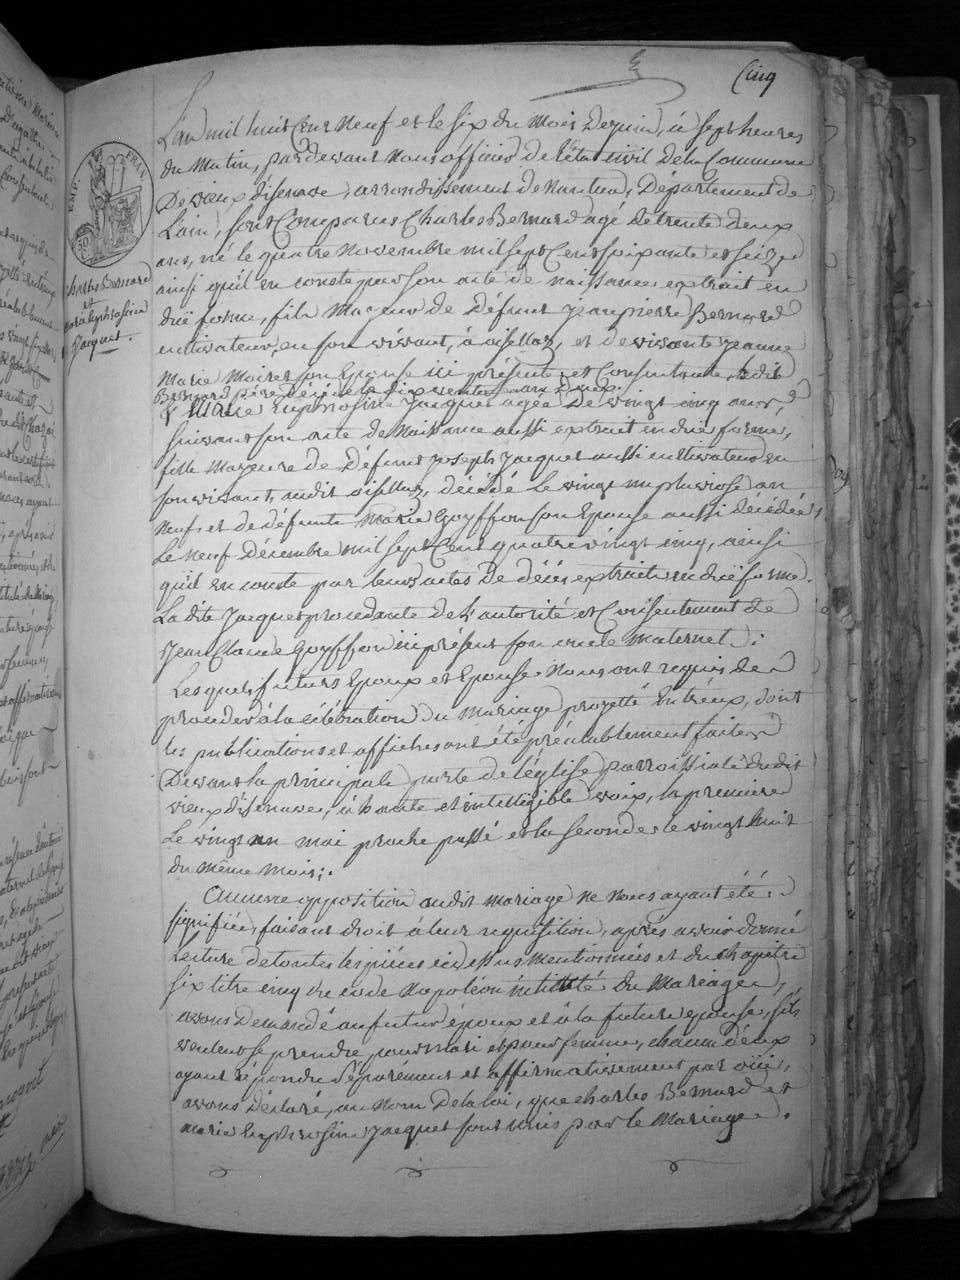 Cinq
L'an mil huit cent Neuf et le six du Mois de juin, à sept heures
du Matin, pardevant Nous officier de l'état civil de la Commune
De vieux d'isenave, arrondissement de Nantua, Département de
L'ain, sont Comparus Charles Bernard agé de trente deux
ans, né le quatre Novembre mil sept Cent soixante et seize
ainsi qu'il en conste par son acte de naissance extrait en
düe forme, fils Majeur de Défunt jean pierre Bernard
cultivateur, en son vivant, à oisellaz, et de vivante jeanne
Marie Moiret son Epouse ici présente et Consentante, ledit
Bernard père décédé le dix ventose an deux.
& Marie Euphrosine Jacquet agée De vingt cinq ans,
suivant son acte de Naissance aussi extrait en düe forme,
fille Majeure de Défunt joseph jacquet aussi cultivateur en
son vivant audit oisellaz, décédé le vingt un pluviose an
Neuf, et de défunte Marie Goyffon son Epouse aussi décédée,
Le Neuf Décembre mil sept Cent quatre vingt cinq, ainsi
qu'il en conste par leurs actes de décès extraits en düe forme.
La dite Jacquet procedante de l'autorité et Consentement de
Jean Claude Goyffon ici présent son oncle maternel.
Lesquels futurs Epoux et Epouse Nous ont requis de
proceder à la célébration du Mariage projetté Entr'eux, dont
les publications et affiches ont été préalablement faites
Devant la principale porte de l'église parroissiale dudit
vieux d'isenave, à haute et intelligible voix, la premiere
Le vingt un mai proche passé et la seconde le vingt huit
du même Mois.
Aucune opposition audit mariage ne nous ayant été
signifiée, faisant droit à leur requisition, après avoir donné
Lecture de toutes les pièces ci dessus mentionnées et du chapitre
six titre cinq du code Napoléon intitulé du Mariage,
avons Demandé au futur époux et à la future epouse, s'ils
veulent se prendre pour mari et pour femme, chacun d'eux
ayant répondu séparément et affirmativement par oüi,
avons Déclaré, au Nom De la loi, que charles Bernard et
marie Euphrosine Jacquet sont unis par le Mariage.
EMP. FRAN.
Charles Bernard
et
marie Euphrosine
Jacquet.